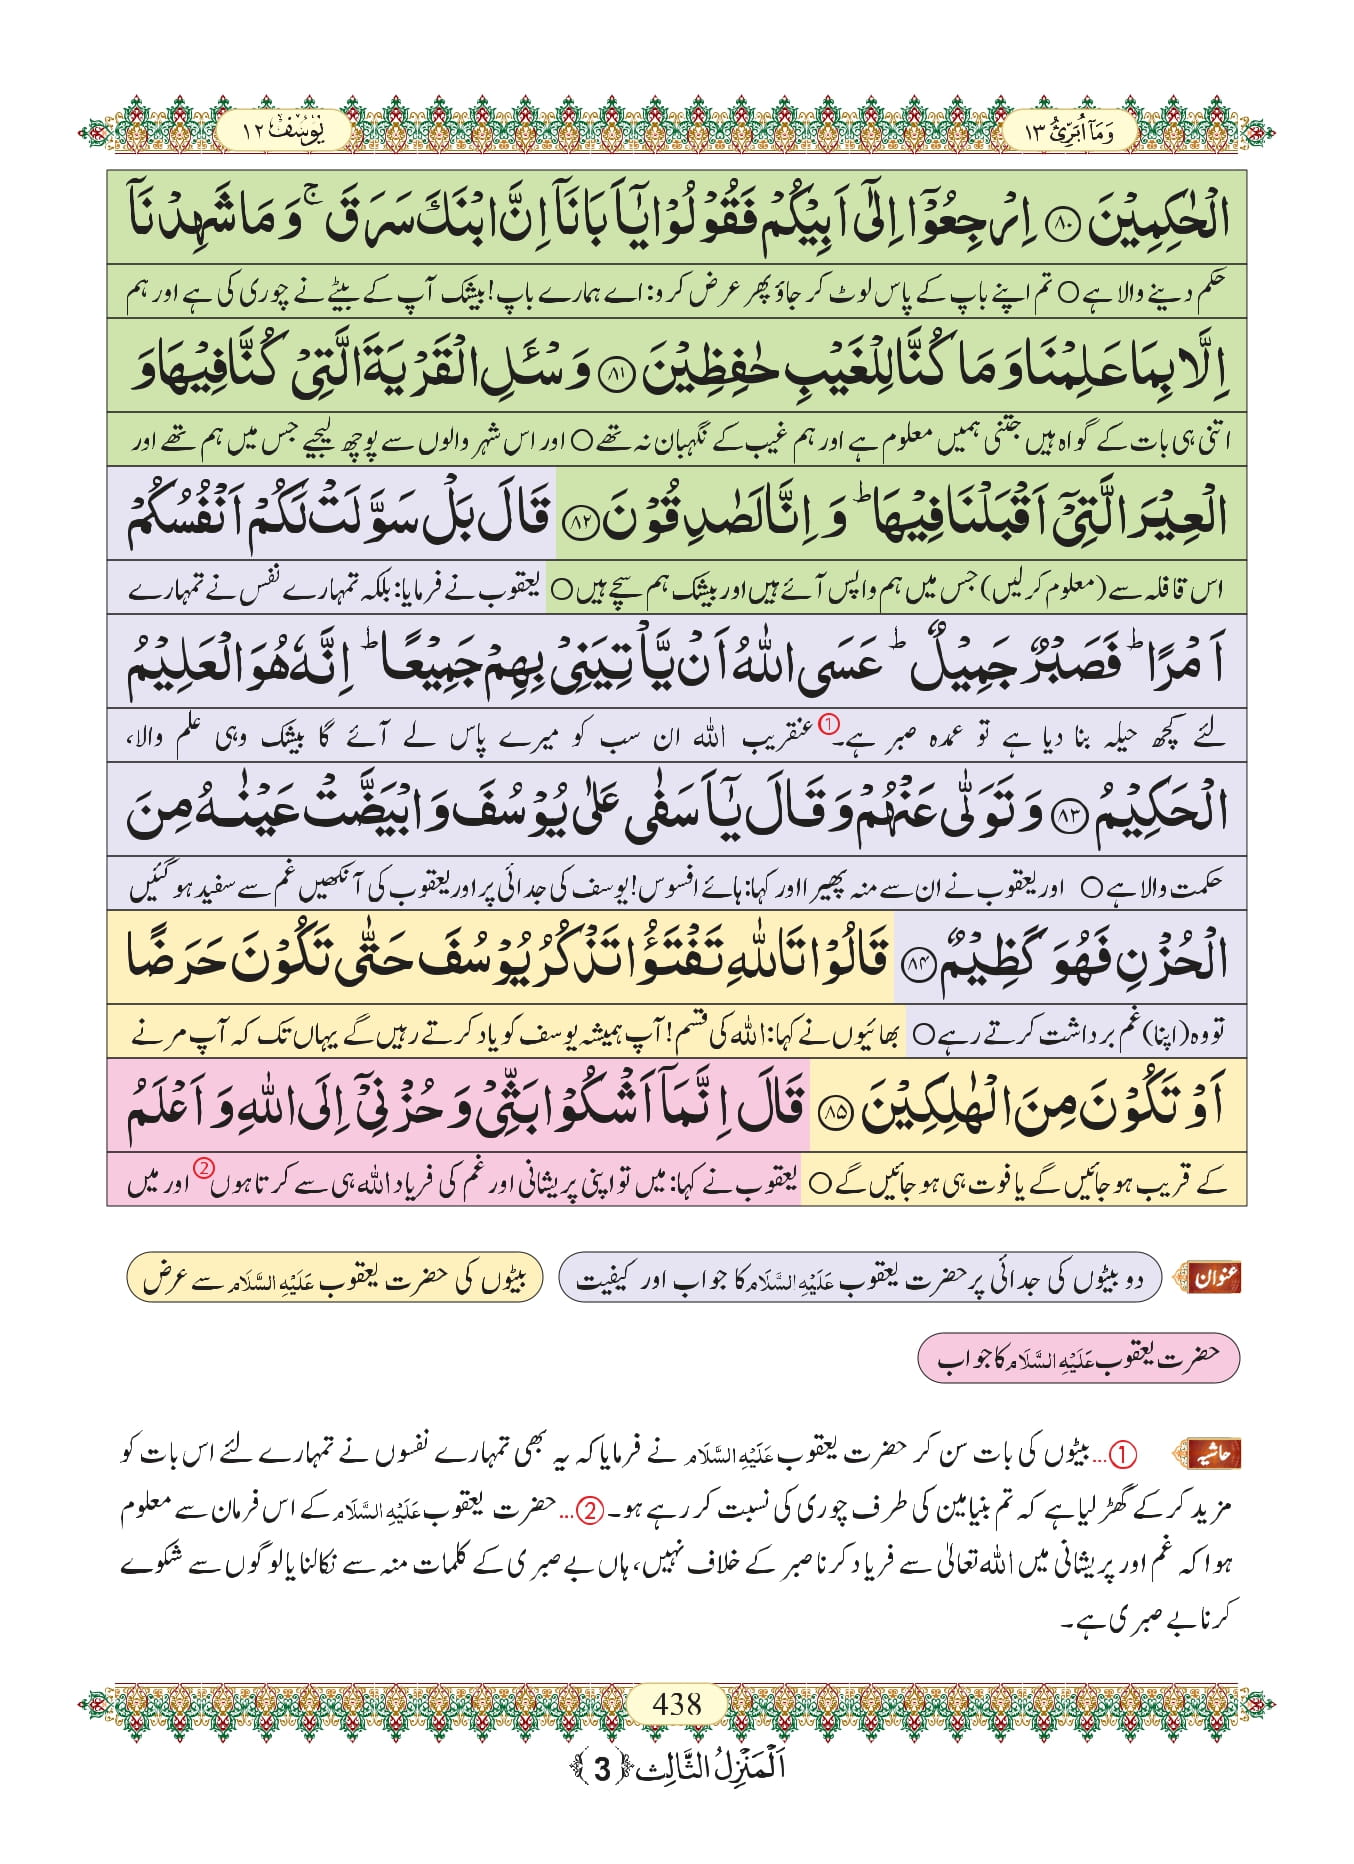 وَمَآ اُبَرِّئُ ١٣
يُوْسُف ١٢
الْحٰكِمِيْنَ ﴿۸۰﴾ اِرْجِعُوْۤا اِلٰۤى اَبِيْكُمْ فَقُوْلُوْا يٰۤاَبَانَاۤ اِنَّ ابْنَكَ سَرَقَ ۚ وَ مَا شَهِدْنَاۤ
حکم دینے والا ہے ○ تم اپنے باپ کے پاس لوٹ کر جاؤ پھر عرض کرو: اے ہمارے باپ! بیشک آپ کے بیٹے نے چوری کی ہے اور ہم
اِلَّا بِمَا عَلِمْنَا وَ مَا كُنَّا لِلْغَيْبِ حٰفِظِيْنَ ﴿۸۱﴾ وَ سْـَٔلِ الْقَرْيَةَ الَّتِيْ كُنَّا فِيْهَا وَ
اتنی ہی بات کے گواہ ہیں جتنی ہمیں معلوم ہے اور ہم غیب کے نگہبان نہ تھے ○ اور اس شہر والوں سے پوچھ لیجیے جس میں ہم تھے اور
الْعِيْرَ الَّتِيْۤ اَقْبَلْنَا فِيْهَا ؕ وَ اِنَّا لَصٰدِقُوْنَ ﴿۸۲﴾ قَالَ بَلْ سَوَّلَتْ لَكُمْ اَنْفُسُكُمْ
اس قافلہ سے (معلوم کرلیں) جس میں ہم واپس آئے ہیں اور بیشک ہم سچے ہیں ○ یعقوب نے فرمایا: بلکہ تمہارے نفس نے تمہارے
اَمْرًا ؕ فَصَبْرٌ جَمِيْلٌ ؕ عَسَى اللّٰهُ اَنْ يَّاْتِيَنِيْ بِهِمْ جَمِيْعًا ؕ اِنَّهٗ هُوَ الْعَلِيْمُ
لئے کچھ حیلہ بنا دیا ہے تو عمدہ صبر ہے۔① عنقریب اللہ ان سب کو میرے پاس لے آئے گا بیشک وہی علم والا،
الْحَكِيْمُ ﴿۸۳﴾ وَ تَوَلّٰى عَنْهُمْ وَ قَالَ يٰۤاَسَفٰى عَلٰى يُوْسُفَ وَ ابْيَضَّتْ عَيْنٰهُ مِنَ
حکمت والا ہے ○ اور یعقوب نے ان سے منہ پھیرا اور کہا: ہائے افسوس! یوسف کی جدائی پر اور یعقوب کی آنکھیں غم سے سفید ہو گئیں
الْحُزْنِ فَهُوَ كَظِيْمٌ ﴿۸۴﴾ قَالُوْا تَاللّٰهِ تَفْتَؤُا تَذْكُرُ يُوْسُفَ حَتّٰى تَكُوْنَ حَرَضًا
تو وہ (اپنا) غم برداشت کرتے رہے ○ بھائیوں نے کہا: اللہ کی قسم! آپ ہمیشہ یوسف کو یاد کرتے رہیں گے یہاں تک کہ آپ مرنے
اَوْ تَكُوْنَ مِنَ الْهٰلِكِيْنَ ﴿۸۵﴾ قَالَ اِنَّمَاۤ اَشْكُوْا بَثِّيْ وَ حُزْنِيْۤ اِلَى اللّٰهِ وَ اَعْلَمُ
کے قریب ہو جائیں گے یا فوت ہی ہو جائیں گے ○ یعقوب نے کہا: میں تو اپنی پریشانی اور غم کی فریاد اللہ ہی سے کرتا ہوں② اور میں
عنوان دو بیٹوں کی جدائی پر حضرت یعقوب عَلَيْهِ السَّلَام کا جواب اور کیفیت بیٹوں کی حضرت یعقوب عَلَيْهِ السَّلَام سے عرض
حضرت یعقوب عَلَيْهِ السَّلَام کا جواب
حاشیہ ①...بیٹوں کی بات سن کر حضرت یعقوب عَلَيْهِ السَّلَام نے فرمایا کہ یہ بھی تمہارے نفسوں نے تمہارے لئے اس بات کو
مزید کر کے گھڑ لیا ہے کہ تم بنیامین کی طرف چوری کی نسبت کر رہے ہو۔ ②...حضرت یعقوب عَلَيْهِ السَّلَام کے اس فرمان سے معلوم
ہوا کہ غم اور پریشانی میں اللہ تعالیٰ سے فریاد کرنا صبر کے خلاف نہیں، ہاں بے صبری کے کلمات منہ سے نکالنا یا لوگوں سے شکوے
کرنا بے صبری ہے۔
438
اَلْمَنْزِلُ الثَّالِث ﴿3﴾